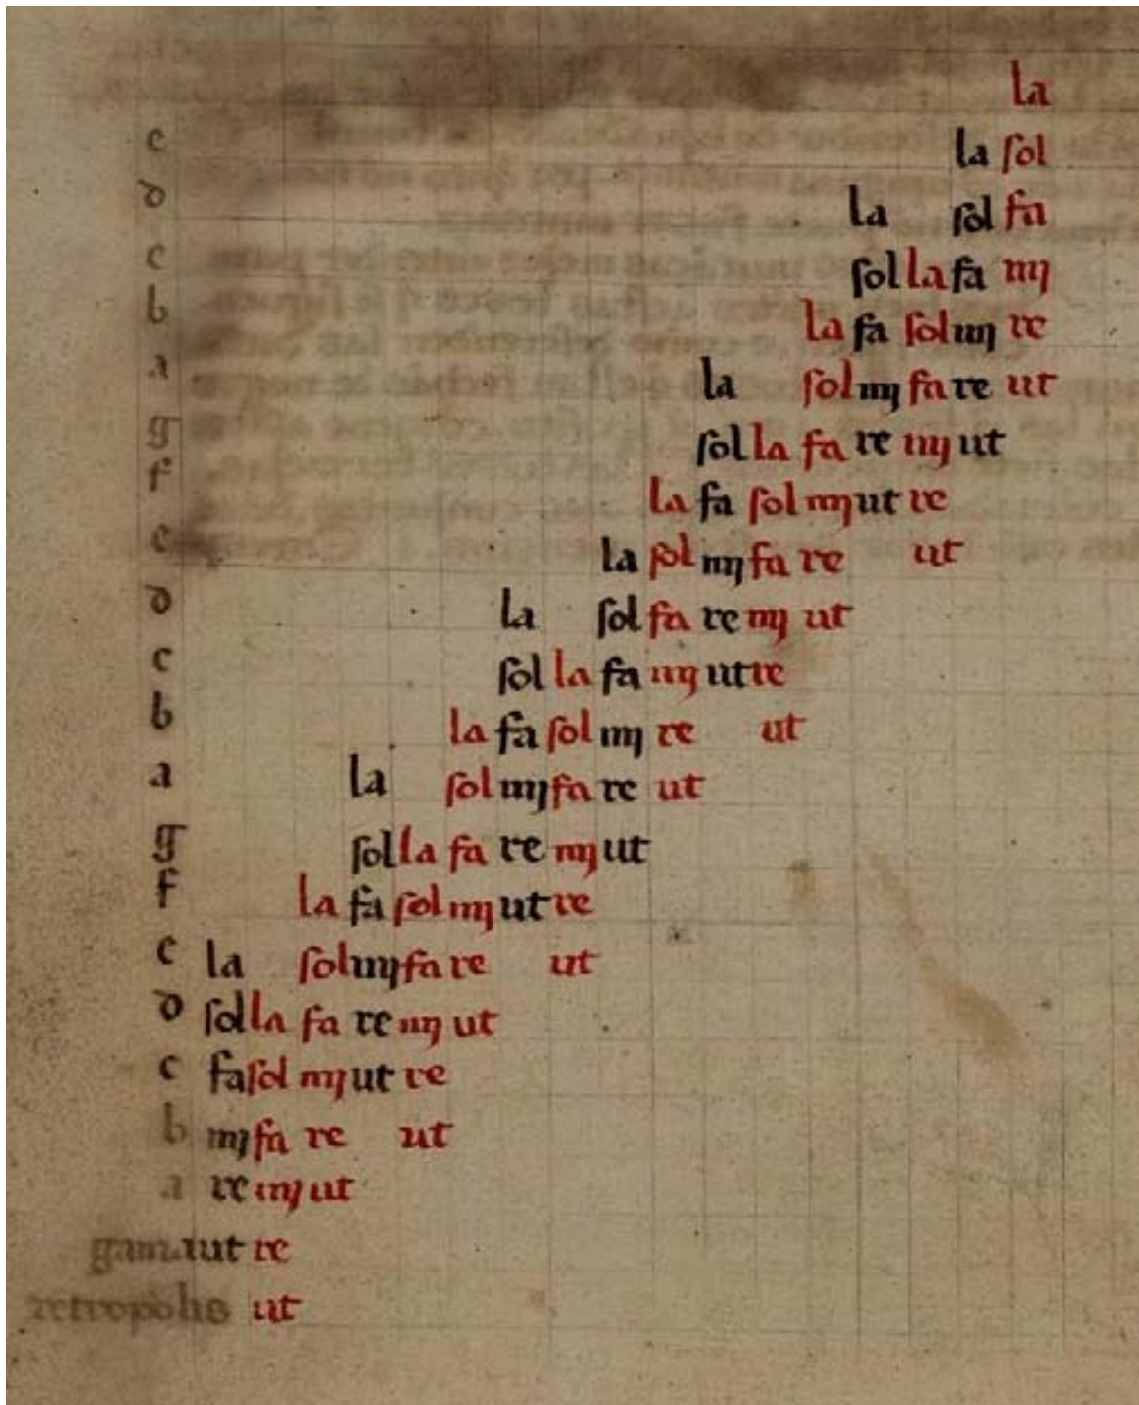 la
e la sol
d la sol fa
c sol la fa mj
b la fa sol mj re
a la sol mj fa re ut
g sol la fa re mj ut
f la fa sol mj ut re
e la sol mj fa re ut
d la sol fa re mj ut
c sol la fa mj ut re
b la fa sol mj re ut
a la sol mj fa re ut
g sol la fa re mj ut
f la fa sol mj ut re
e la sol mj fa re ut
d sol la fa re mj ut
c fa sol mj ut re
b mj fa re ut
a re mj ut
gamaut re
retropolis ut